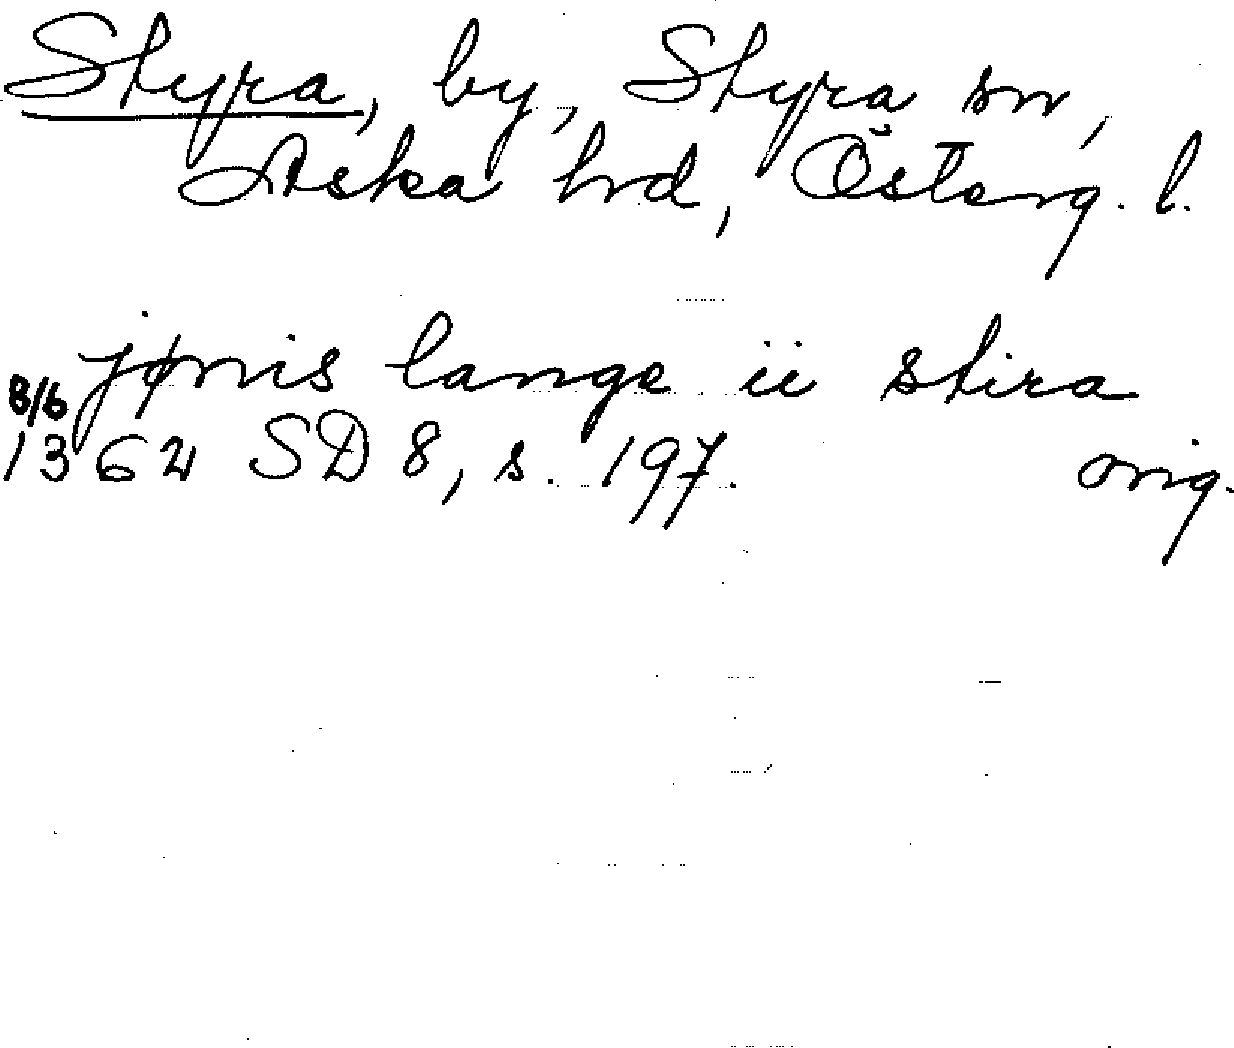 Styra, by, Styra sn,
Aska hrd, Österg. l.
jønis lange ii stira
8/6
1362 SD 8, s. 197. orig.